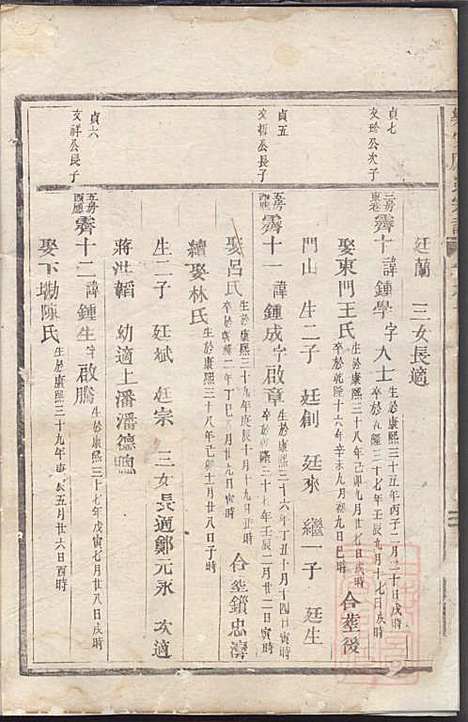 廷蘭 三女長適
貞七
文珍公次子
三房 東宅 霽十 諱鍾學 字人士 生於康熙三十五年丙子二月二十日戌時 卒於乾隆三十七年壬辰九月十七日戌時
娶東門王氏 生於康熙三十八年己卯九月廿七日戌時 卒於乾隆十六年辛未九月初九日巳時 合塟後
門山 生二子 廷創 廷來 繼一子 廷生
貞五
文 公長子
五房 西應 霽十一 諱鍾成 字啟章 生於康熙三十六年丁丑十月十四日寅時 卒於乾隆三十七年壬辰二月廿二日寅時
娶呂氏 生於康熙三十九年庚辰十月十九日丑時 卒於乾隆二年丁巳 月廿九日寅時 合塟鎖忠灣
續娶林氏 生於康熙三十八年己卯十二月廿八日子時
生二子 廷斌 廷宗 三女長適鄭元永 次適
蔣洪韜 幼適上潘潘德鳴
貞六
文祥公長子
五房 西應 霽十二 諱鍾生 字啟勝 生於康熙三十七年戊寅七月廿八日戌時
娶下坳陳氏 生於康熙三十九年庚辰五月廿六日酉時